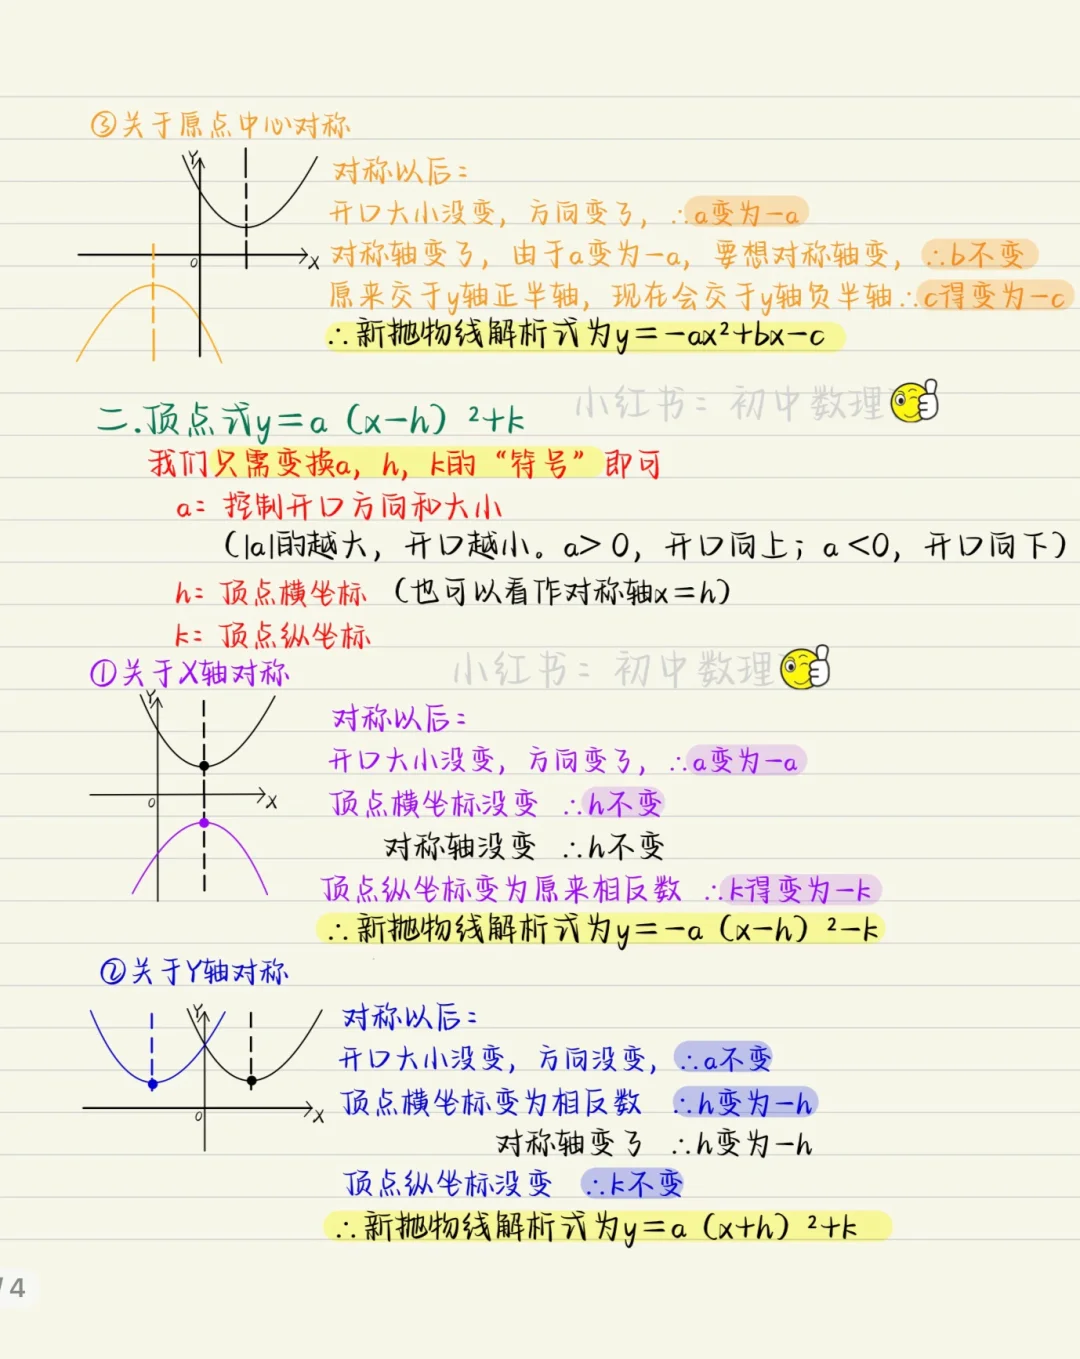 ③关于原点中心对称
Y
O
X
对称以后：
开口大小没变，方向变了，∴a变为-a
对称轴变了，由于a变为-a，要想对称轴变，∴b不变
原来交于y轴正半轴，现在会交于y轴负半轴∴c得变为-c
∴新抛物线解析式为y=-ax²+bx-c
小红书：初中数理
二.顶点式y=a（x-h）²+k
我们只需变换a，h，k的“符号”即可
a：控制开口方向和大小
（|a|的越大，开口越小。a>0，开口向上；a<0，开口向下）
h：顶点横坐标（也可以看作对称轴x=h）
k：顶点纵坐标
小红书：初中数理
①关于X轴对称
Y
O
X
对称以后：
开口大小没变，方向变了，∴a变为-a
顶点横坐标没变 ∴h不变
对称轴没变 ∴h不变
顶点纵坐标变为原来相反数 ∴k得变为-k
∴新抛物线解析式为y=-a（x-h）²-k
②关于Y轴对称
Y
O
X
对称以后：
开口大小没变，方向没变，∴a不变
顶点横坐标变为相反数 ∴h变为-h
对称轴变了 ∴h变为-h
顶点纵坐标没变 ∴k不变
∴新抛物线解析式为y=a（x+h）²+k
/4